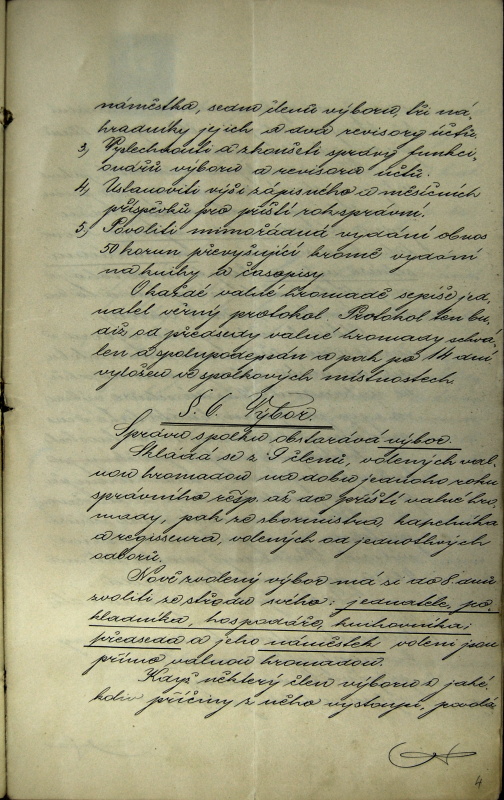 náměstka, sedm členů výboru, tři ná-
hradníky jejich a dva revisory účtů.
3, Vyslechnouti a zkoušeti správy funkci-
onářů výboru a revisorů účtů.
4, Ustanoviti výši zápisného a měsíčních
příspěvků pro příští rok správní.
5, Povoliti mimořádná vydání obnos
50 korun převyšující kromě vydání
na knihy a časopisy
O každé valné hromadě sepíše jed-
natel věrný protokol. Protokol ten bu-
diž od předsedy valné hromady schvá-
len a spolupodepsán a pak po 14 dní
vyložen ve spolkových místnostech.
§. 6. Výbor.
Správu spolku obstarává výbor.
Skládá se z 9 členů, volených val-
nou hromadou na dobu jednoho roku
správního řečp. až do příští valné hro-
mady, pak ze sbormistra, kapelníka
a regisseura, volených od jednotlivých
odborů.
Nově zvolený výbor má si do 8. dnů
zvoliti ze středu svého: jednatele, po-
kladníka, hospodáře, knihovníka;
předseda a jeho náměstek voleni jsou
přímo valnou hromadou.
Když některý člen výboru z jaké-
koliv příčiny z něho vystoupí, povolá
4